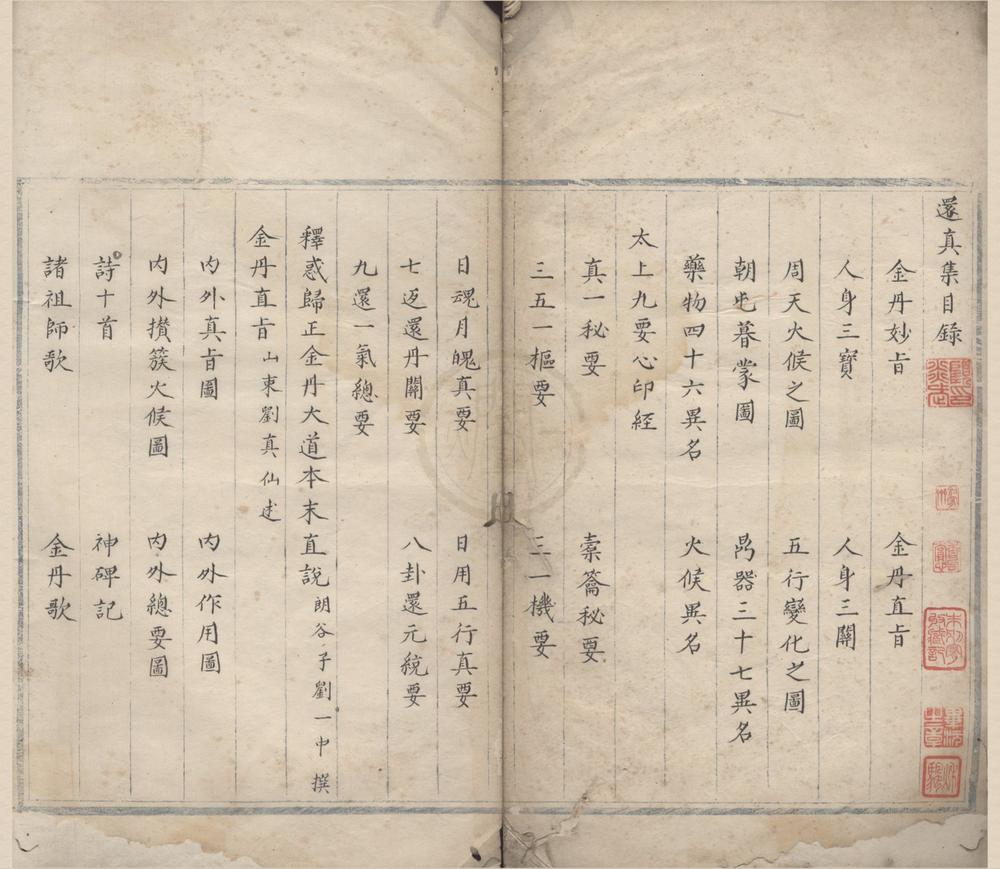 還真集目錄
金丹妙㫖 金丹直㫖
人身三寶 人身三關
周天火候之圖 五行變化之圖
朝屯暮蒙圖 鼎器三十七異名
藥物四十六異名 火候異名
太上九要心印経
真一秘要 橐籥秘要
三五一樞要 三一機要
日魂月魄真要 日用五行真要
七返還丹關要 八卦還元統要
九還一氣總要
釋惑歸正金丹大道本末直說 朗谷子劉一中撰
金丹直㫖 山東劉真仙述
内外真㫖圖 内外作用圖
内外攅簇火候圖 内外總要圖
詩十首 神碑記
諸祖師歌 金丹歌